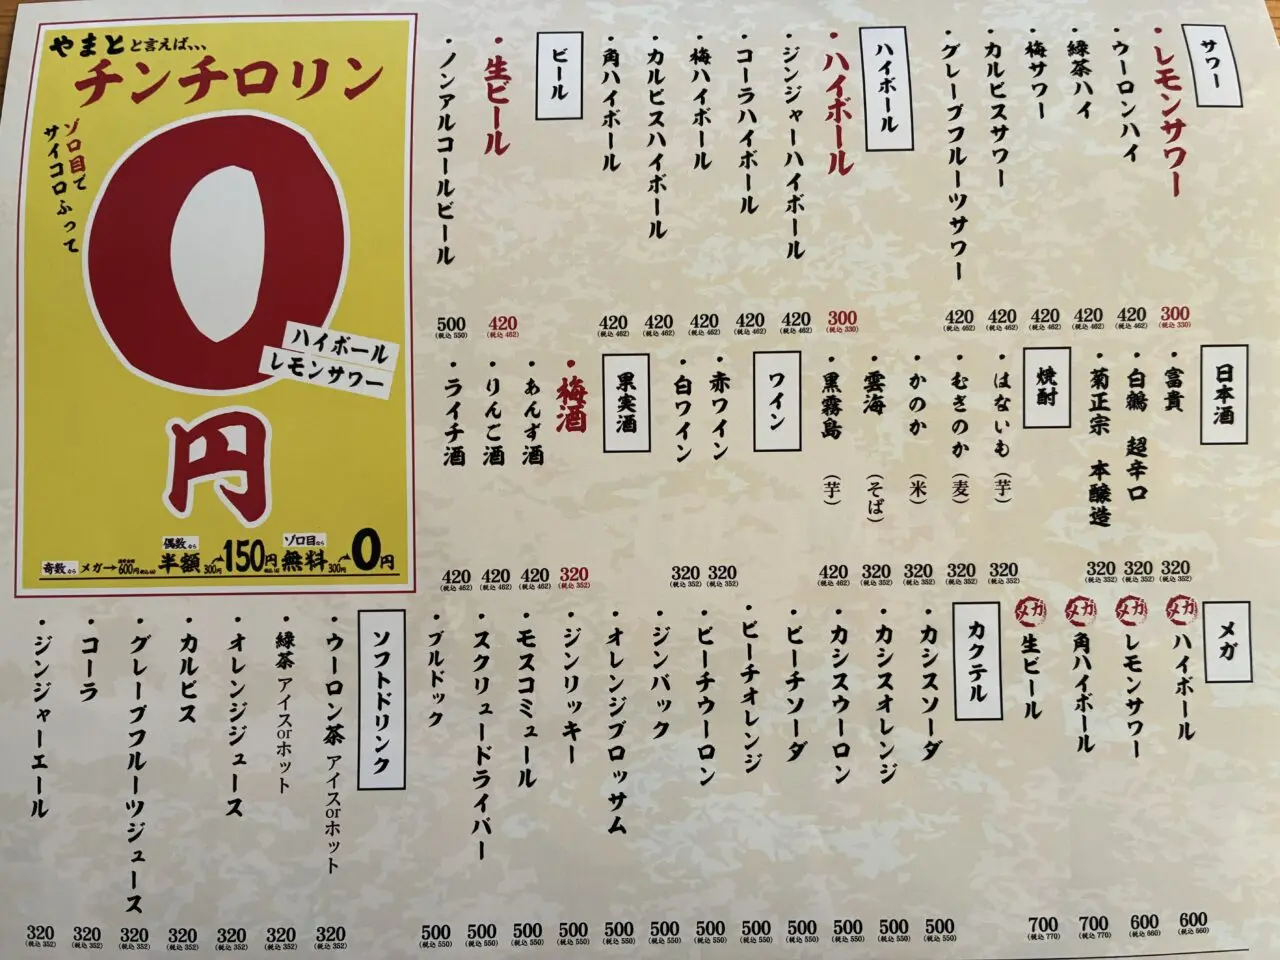 やまとと言えば、、、
チンチロリン
ゾロ目で
サイコロふって
0
円
ハイボール
レモンサワー
奇数なら メガ→
偶数なら 半額 300円→150円
ゾロ目なら 無料 300円→0円
サワー
・レモンサワー 300 (税込 330)
・ウーロンハイ 420 (税込 462)
・緑茶ハイ 420 (税込 462)
・梅サワー 420 (税込 462)
・カルピスサワー 420 (税込 462)
・グレープフルーツサワー 420 (税込 462)
ハイボール
・ハイボール 300 (税込 330)
・ジンジャーハイボール 420 (税込 462)
・コーラハイボール 420 (税込 462)
・梅ハイボール 420 (税込 462)
・カルピスハイボール 420 (税込 462)
・角ハイボール 420 (税込 462)
ビール
・生ビール 420 (税込 462)
・ノンアルコールビール 500 (税込 550)
日本酒
・富貴 320 (税込 352)
・白鶴 超辛口 320 (税込 352)
・菊正宗 本醸造 320 (税込 352)
焼酎
・はないも（芋） 320 (税込 352)
・むぎのか（麦） 320 (税込 352)
・かのか（米） 320 (税込 352)
・雲海（そば） 320 (税込 352)
・黒霧島（芋） 420 (税込 462)
ワイン
・赤ワイン 320 (税込 352)
・白ワイン 320 (税込 352)
果実酒
・梅酒 320 (税込 352)
・あんず酒 420 (税込 462)
・りんご酒 420 (税込 462)
・ライチ酒 420 (税込 462)
メガ
メガ ハイボール 600 (税込 660)
メガ レモンサワー 600 (税込 660)
メガ 角ハイボール 700 (税込 770)
メガ 生ビール 700 (税込 770)
カクテル
・カシスソーダ 500 (税込 550)
・カシスオレンジ 500 (税込 550)
・カシスウーロン 500 (税込 550)
・ピーチソーダ 500 (税込 550)
・ピーチオレンジ 500 (税込 550)
・ピーチウーロン 500 (税込 550)
・ジンバック 500 (税込 550)
・オレンジブロッサム 500 (税込 550)
・ジンリッキー 500 (税込 550)
・モスコミュール 500 (税込 550)
・スクリュードライバー 500 (税込 550)
・ブルドック 500 (税込 550)
ソフトドリンク
・ウーロン茶 アイスorホット 320 (税込 352)
・緑茶 アイスorホット 320 (税込 352)
・オレンジジュース 320 (税込 352)
・カルピス 320 (税込 352)
・グレープフルーツジュース 320 (税込 352)
・コーラ 320 (税込 352)
・ジンジャーエール 320 (税込 352)